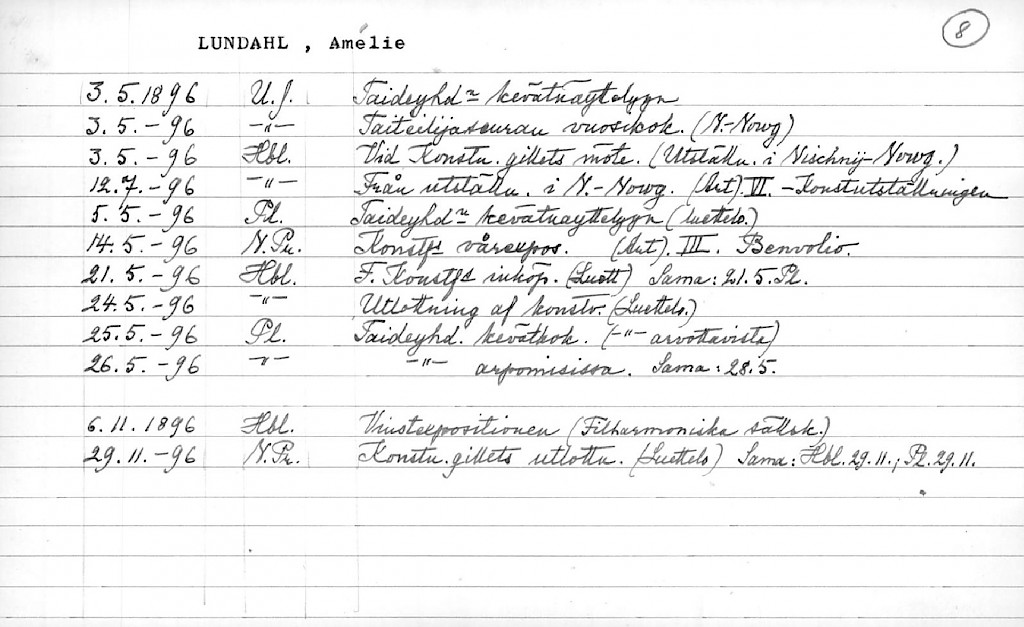 8
LUNDAHL, Amélie
3.5.1896 U.S. Taideyhd:n kevätnäyttelyyn
3.5.-96 -"- Taiteilijaseuran vuosikok. (N.-Nowg)
3.5.-96 Hbl. Vid Konstn. gillets möte. (Utställn. i Nischnij-Nowg.)
12.7.-96 -"- Från utställn. i N.-Nowg. (Art). VI. -Konstutställningen
5.5.-96 Pl. Taideyhd:n kevätnäyttelyyn (luettelo.)
14.5.-96 N.Pr. Konstf:s vårexpos. (Art). III. Benvolio.
21.5.-96 Hbl. F. Konstf:s inköp. (Luett) Sama: 21.5. Pl.
24.5.-96 -"- Utlottning af konstv. (Luettelo.)
25.5.-96 Pl. Taideyhd. kevätkok. (-"- arvottavista)
26.5.-96 -"- -"- arpomisissa. Sama: 28.5.
6.11.1896 Hbl. Vinstexpositionen (Filharmoniska sällsk.)
29.11.-96 N.Pr. Konstn. gillets utlottn. (Luettelo) Sama: Hbl. 29.11.; Pl. 29.11.